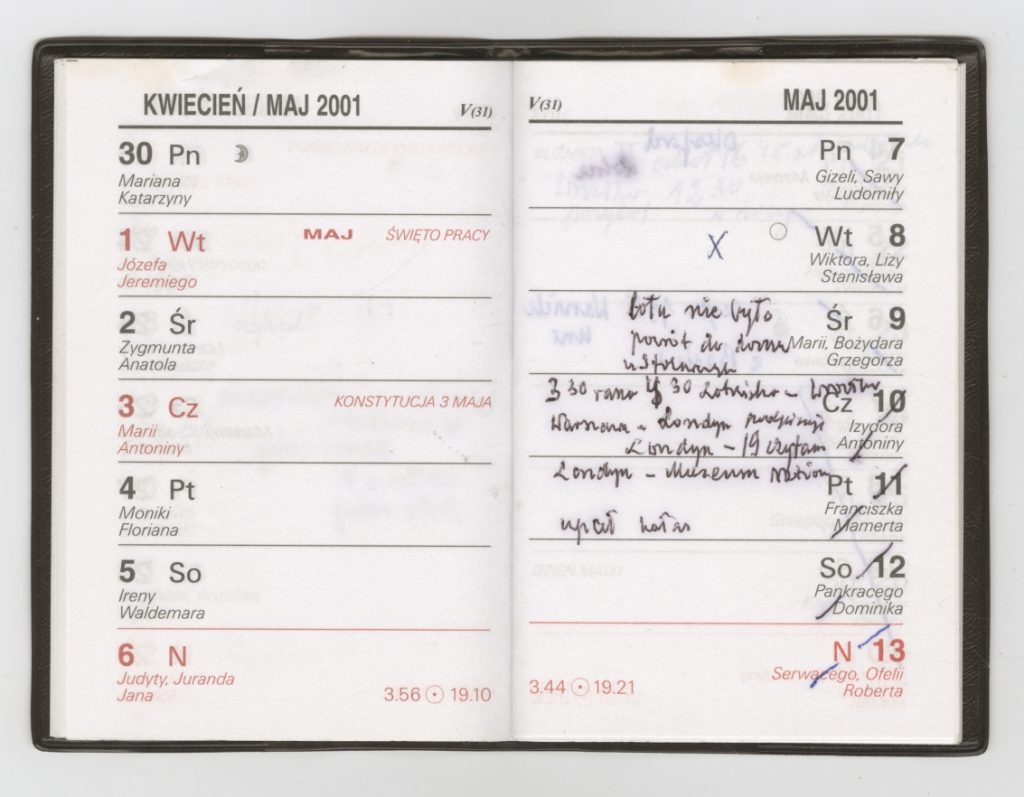 KWIECIEŃ / MAJ 2001 V(31)
30 Pn
Mariana
Katarzyny
1 Wt MAJ ŚWIĘTO PRACY
Józefa
Jeremiego
2 Śr
Zygmunta
Anatola
3 Cz KONSTYTUCJA 3 MAJA
Marii
Antoniny
4 Pt
Moniki
Floriana
5 So
Ireny
Waldemara
6 N
Judyty, Juranda
Jana 3.56 19.10
V(31) MAJ 2001
Pn 7
Gizeli, Sawy
Ludomiły
X Wt 8
Wiktora, Lizy
Stanisława
lotu nie było
Śr 9
powrót do domu
Marii, Bożydara
Grzegorza
3 30 rano 30 Lotnisko –
Cz 10
Izydora
Warszawa – Londyn
Antoniny
Londyn – 19 czytam
Londyn – Muzeum Nation
Pt 11
Franciszka
upał hałas Mamerta
So 12
Pankracego
Dominika
N 13
Serwacego, Ofelii
3.44 19.21 Roberta
DZIEŃ MATKI